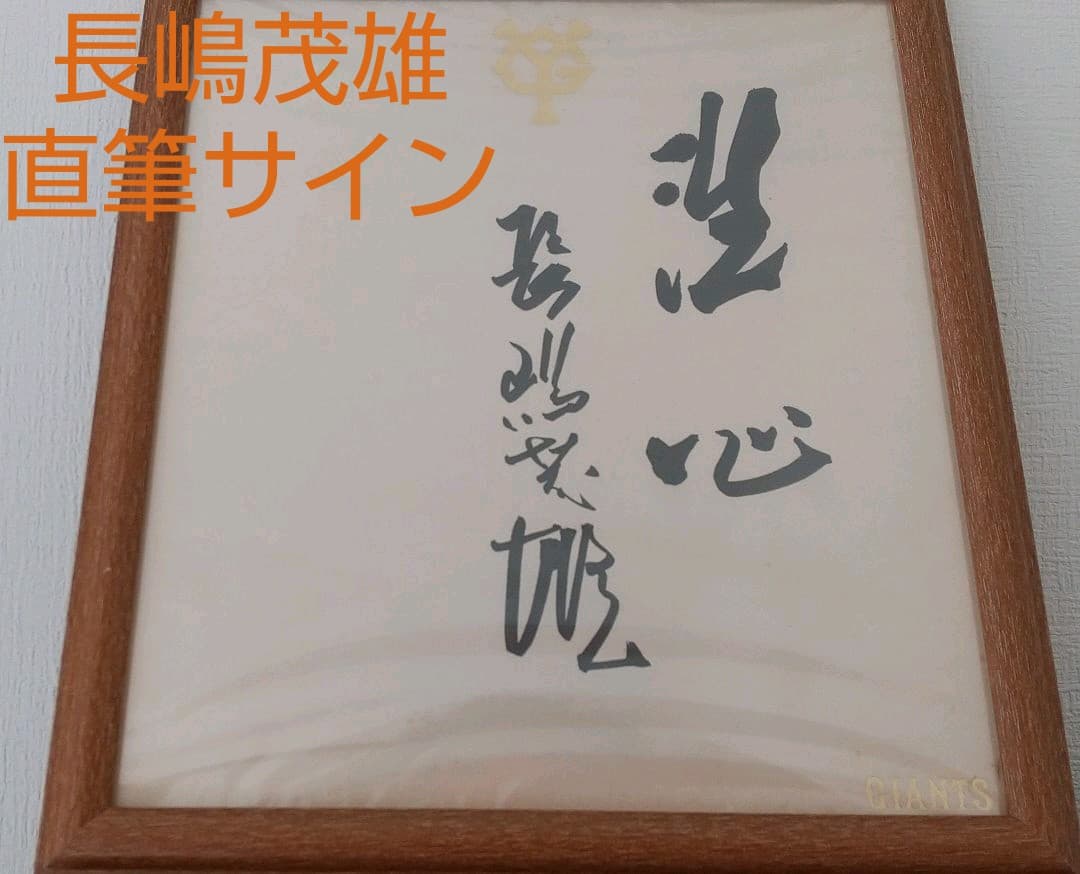 長嶋茂雄
直筆サイン
洗心
長嶋茂雄
GIANTS